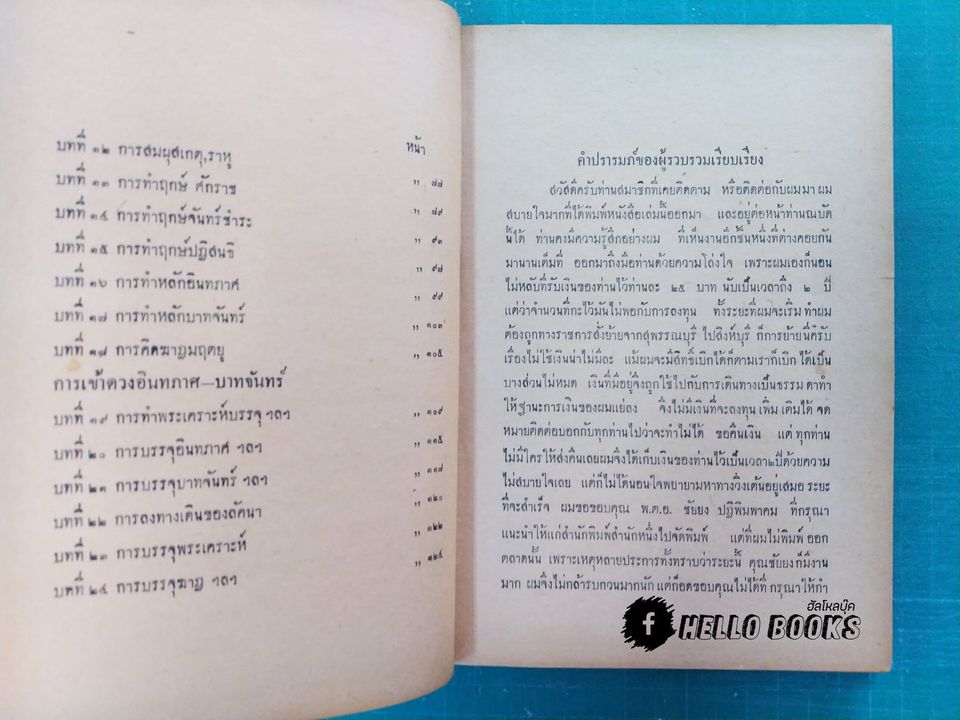 หน้า
บทที่ ๑๒ การสมผุสเกตุ,ราหู ,, ๗๗
บทที่ ๑๓ การทำฤกษ์ ศักราช ,, ๗๙
บทที่ ๑๔ การทำฤกษ์จันทร์ชำระ ,, ๙๓
บทที่ ๑๕ การทำฤกษ์ปฏิสนธิ ,, ๙๗
บทที่ ๑๖ การทำหลักอินทภาศ ,, ๙๙
บทที่ ๑๗ การทำหลักบาทจันทร์ ,, ๑๐๓
บทที่ ๑๘ การคิดฆาฏมฤตยู ,, ๑๐๕
การเข้าดวงอินทภาศ—บาทจันทร์
บทที่ ๑๙ การทำพระเคราะห์บรรจุ ฯลฯ ,, ๑๐๙
บทที่ ๒๐ การบรรจุอินทภาศ ฯลฯ ,, ๑๑๕
บทที่ ๒๑ การบรรจุบาทจันทร์ ฯลฯ ,, ๑๑๘
บทที่ ๒๒ การลงทางเดินของลัคนา ,, ๑๒๐
บทที่ ๒๓ การบรรจุพระเคราะห์ ,, ๑๒๒
บทที่ ๒๔ การบรรจุฆาฏ ฯลฯ ,, ๑๒๔
คำปรารมภ์ของผู้รวบรวมเรียบเรียง
สวัสดีครับท่านสมาชิกที่เคยติดตาม หรือติดต่อกับผมมา ผม
สบายใจมากที่ได้พิมพ์หนังสือเล่มนี้ออกมา และอยู่ต่อหน้าท่านณบัด
นี้ได้ ท่านคงมีความรู้สึกอย่างผม ที่เห็นงานอีกชิ้นหนึ่งที่ต่างคอยกัน
มานานเต็มที ออกมาถึงมือท่านด้วยความโล่งใจ เพราะผมเองก็นอน
ไม่หลับที่รับเงินของท่านไว้ท่านละ ๒๕ บาท นับเป็นเวลาถึง ๒ ปี
แต่ว่าจำนวนที่กะไว้มันไม่พอกับการลงทุน ทั้งระยะที่ผมจะเริ่ม ทำผม
ต้องถูกทางราชการสั่งย้ายจากสุพรรณบุรี ไปสิงห์บุรี ก็การย้ายนี่ครับ
เรื่องไม่ใช้เงินน่าไม่มีละ แม้ผมจะมีสิทธิ์เบิกได้ก็ตามเราก็เบิกได้เป็น
บางส่วนไม่หมด เงินที่มีอยู่จึงถูกใช้ไปกับการเดินทางเป็นธรรมดาทำ
ให้ฐานะการเงินของผมแย่ลง จึงไม่มีเงินที่จะลงทุนเพิ่มเติมได้ จด
หมายติดต่อบอกกับทุกท่านไปว่าจะทำไม่ได้ ขอคืนเงิน แต่ ทุกท่าน
ไม่มีใครให้ส่งคืนเลยผมจึงได้เก็บเงินของท่านไว้เป็นเวลา๒ปีด้วยความ
ไม่สบายใจเลย แต่ก็ไม่ได้นอนใจพยายามหาทางวิ่งเต้นอยู่เสมอ ระยะ
ที่จะสำเร็จ ผมขอขอบคุณ พ.ต.อ. ชัยยง ปฏิพิมพาคม ที่กรุณา
แนะนำให้แก่สำนักพิมพ์สำนักหนึ่งไปจัดพิมพ์ แต่ที่ผมไม่พิมพ์ ออก
ตลาดนั้น เพราะเหตุหลายประการทั้งทราบว่าระยะนี้ คุณชัยยงก็มีงาน
มาก ผมจึงไม่กล้ารบกวนมากนัก แต่ก็อดขอบคุณไม่ได้ที่ กรุณาให้กำ
ฮัลโหลบุ๊ค
f HELLO BOOKS